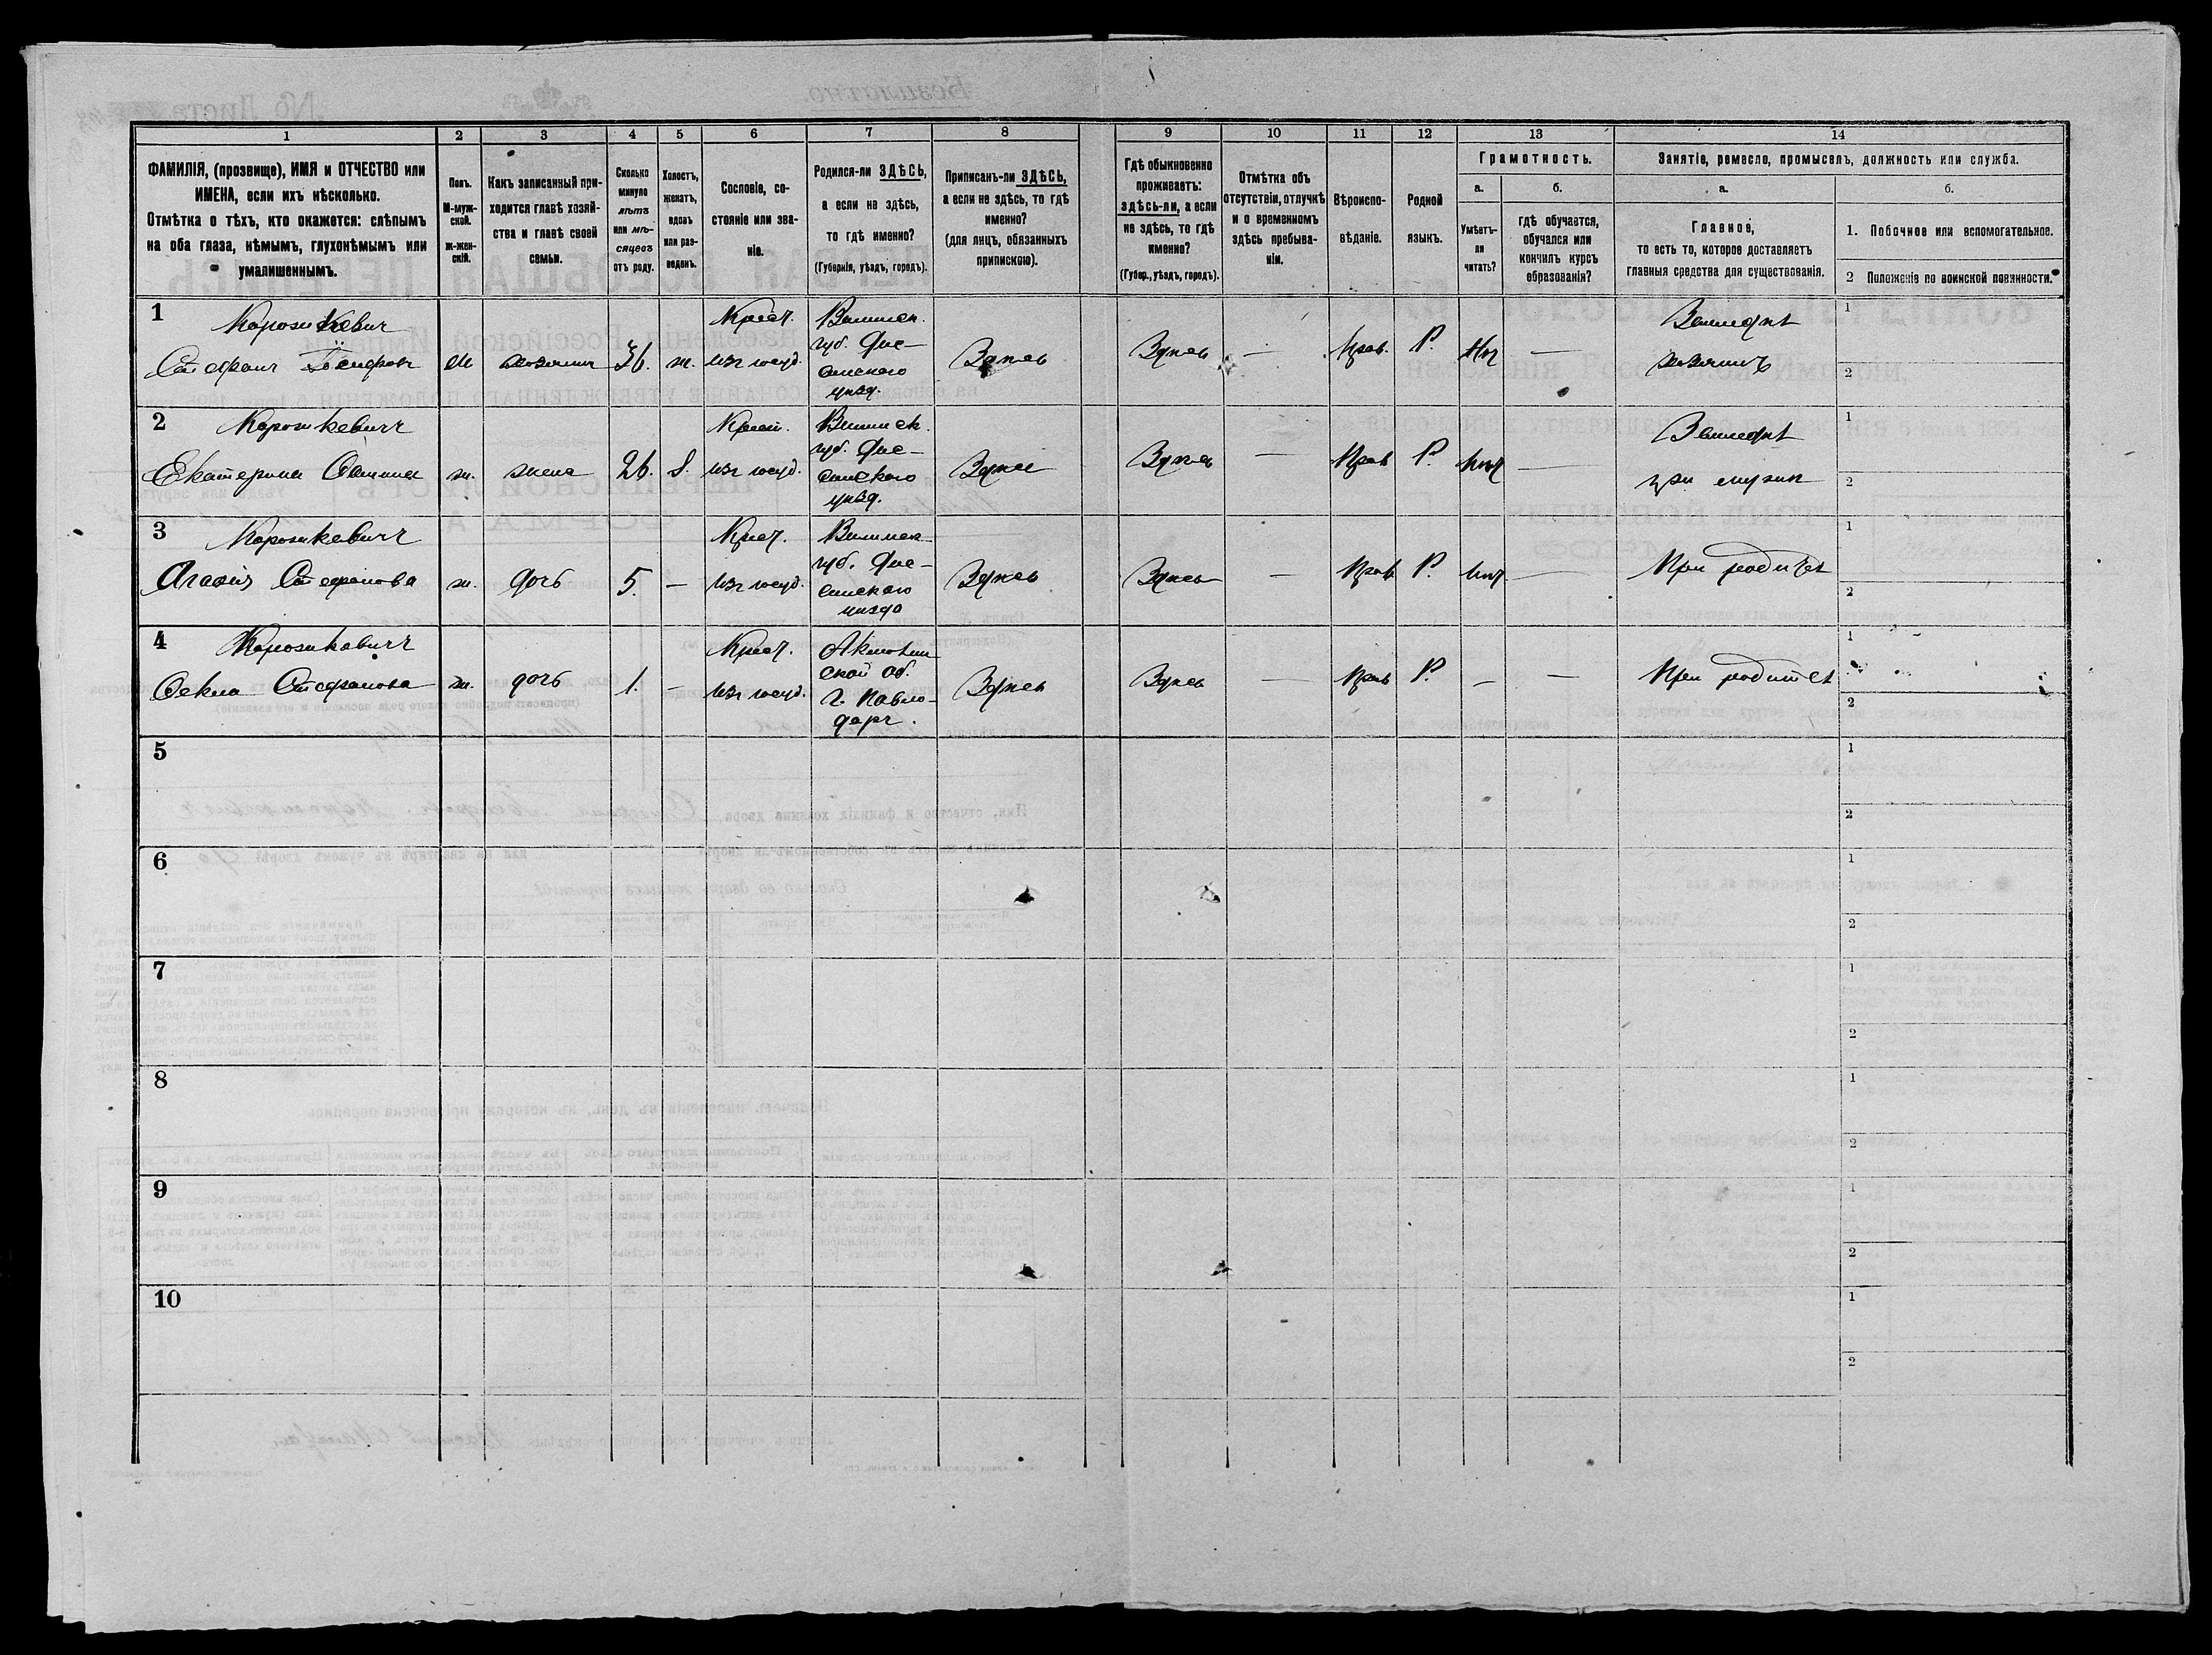 1 2 3 4 5 6 7 8 9 10 11 12 13 14
ФАМИЛІЯ, (прозвище), ИМЯ и ОТЧЕСТВО или
ИМЕНА, если ихъ нѣсколько.
Отмѣтка о тѣхъ, кто окажется: слѣпымъ
на оба глаза, нѣмымъ, глухонѣмымъ или
умалишеннымъ.
Полъ.
М-муж-
ской.
ж-жен-
скій.
Какъ записанный при-
ходится главѣ хозяй-
ства и главѣ своей
семьи.
Сколько
минуло
лѣтъ
или мѣ-
сяцевъ
отъ роду.
Холостъ,
женатъ,
вдовъ
или раз-
веденъ.
Сословіе, со-
стояніе или зва-
ніе.
Родился-ли ЗДѢСЬ,
а если не здѣсь,
то гдѣ именно?
(Губернія, уѣздъ, городъ).
Приписанъ-ли ЗДѢСЬ,
а если не здѣсь, то гдѣ
именно?
(для лицъ, обязанныхъ
припискою).
Гдѣ обыкновенно
проживаетъ:
здѣсь-ли, а если
не здѣсь, то гдѣ
именно?
(Губер., уѣздъ, городъ).
Отмѣтка объ
отсутствіи, отлучкѣ
и о временномъ
здѣсь пребыва-
ніи.
Вѣроиспо-
вѣданіе.
Родной
языкъ.
Грамотность.
а.
Умѣетъ-
ли
читать?
б.
гдѣ обучается,
обучался или
кончилъ курсъ
образованія?
Занятіе, ремесло, промыселъ, должность или служба.
а.
Главное,
то есть то, которое доставляетъ
главныя средства для существованія.
б.
1. Побочное или вспомогательное.
2 Положеніе по воинской повинности.
1 Карожкевич Крест. Виленск. Земледѣл 1
губ. Дис-
Стефанъ м хозяинъ 36. ж. изъ госуд. Здѣсь Здѣсь — Прав. Р. Нѣт — хозяинъ 2
сенскаго
уѣзд.
2 Карожкевичъ Крест. Виленск. Земледѣл 1
губ. Дис-
Екатерина ж. жена 26. З. изъ госуд. сенскаго Здѣсь Здѣсь — Прав Р. Нѣт — при мужѣ 2
уѣзд.
3 Карожкевичъ Крест. Виленск- 1
губ. Дис-
Агафія Стефанова ж. дочь 5. — изъ госуд. сенскаго Здѣсь Здѣсь — Прав Р. Нѣт — При родител 2
уѣзда
4 Карожкевичъ Крест. 1
ской об.
Фекла Стефанова ж. дочь 1. — изъ госуд. г. Павло- Здѣсь Здѣсь — Прав Р. — — При родител 2
даръ.
5 1
2
6 1
2
7 1
2
8 1
2
9 1
2
10 1
2